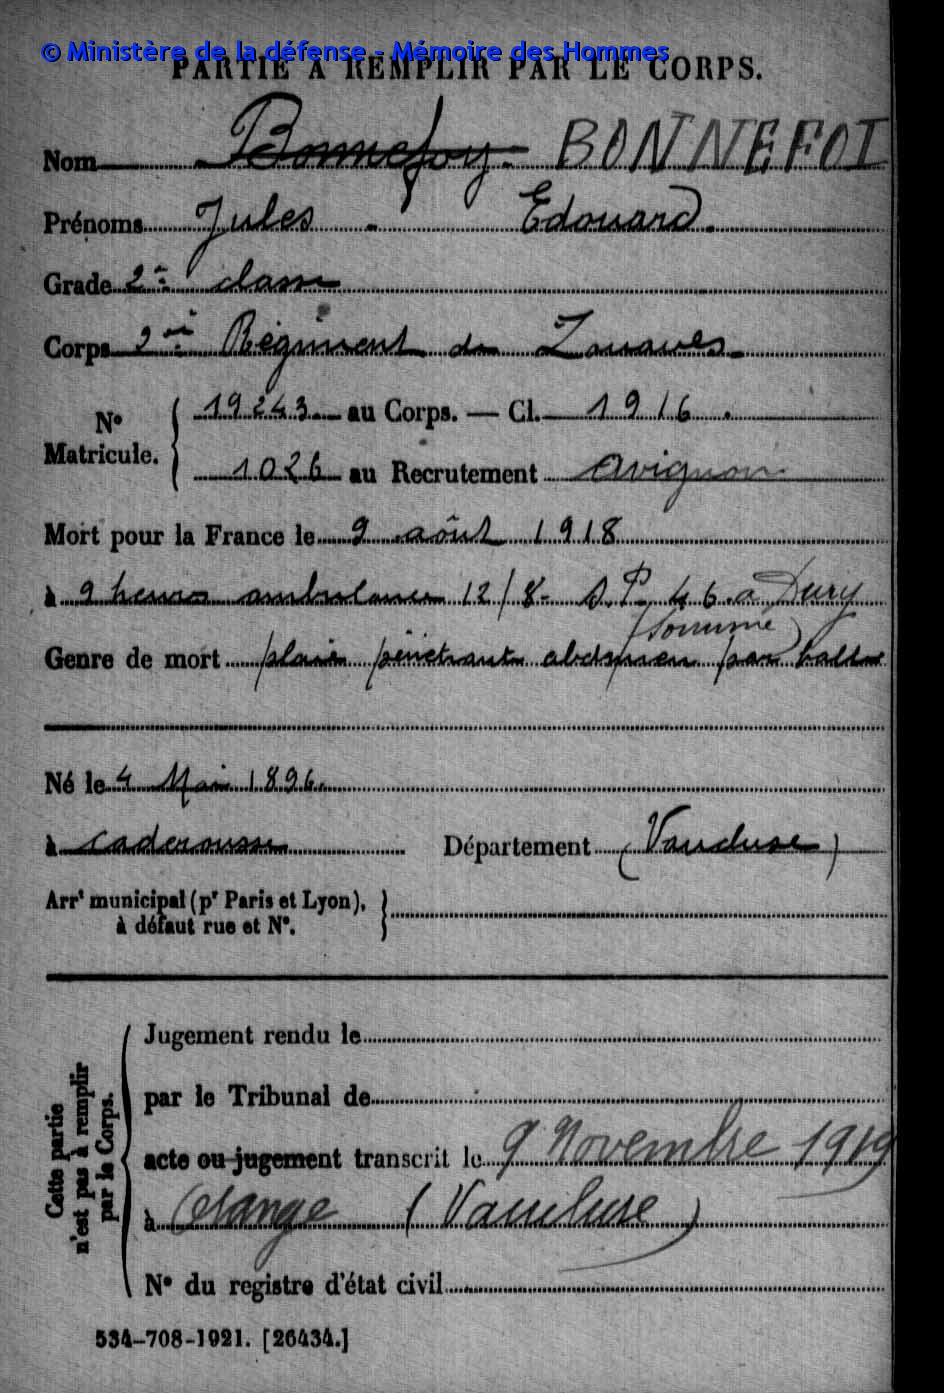 © Ministère de la défense - Mémoire des Hommes
PARTIE À REMPLIR PAR LE CORPS.
Nom Bonnefoy. BONNEFOI
Prénoms Jules - Edouard.
Grade 2e classe
Corps 2e Régiment de Zouaves.
N°
Matricule.
19243 au Corps. — Cl. 1916.
1026 au Recrutement Avignon
Mort pour la France le 9 août 1918
à 9 heures ambulance 12/8 - S.P. 46 a Dury
(Somme)
Genre de mort plaie pénétrante abdomen par balle
Né le 4 Mai 1896.
à Caderousse Département (Vaucluse)
Arrt municipal (pr Paris et Lyon),
à défaut rue et N°.
Cette partie
n'est pas à remplir
par le Corps.
Jugement rendu le
par le Tribunal de
acte ou jugement transcrit le 9 Novembre 1919
à Orange (Vaucluse)
N° du registre d'état civil
534-708-1921. [26434.]